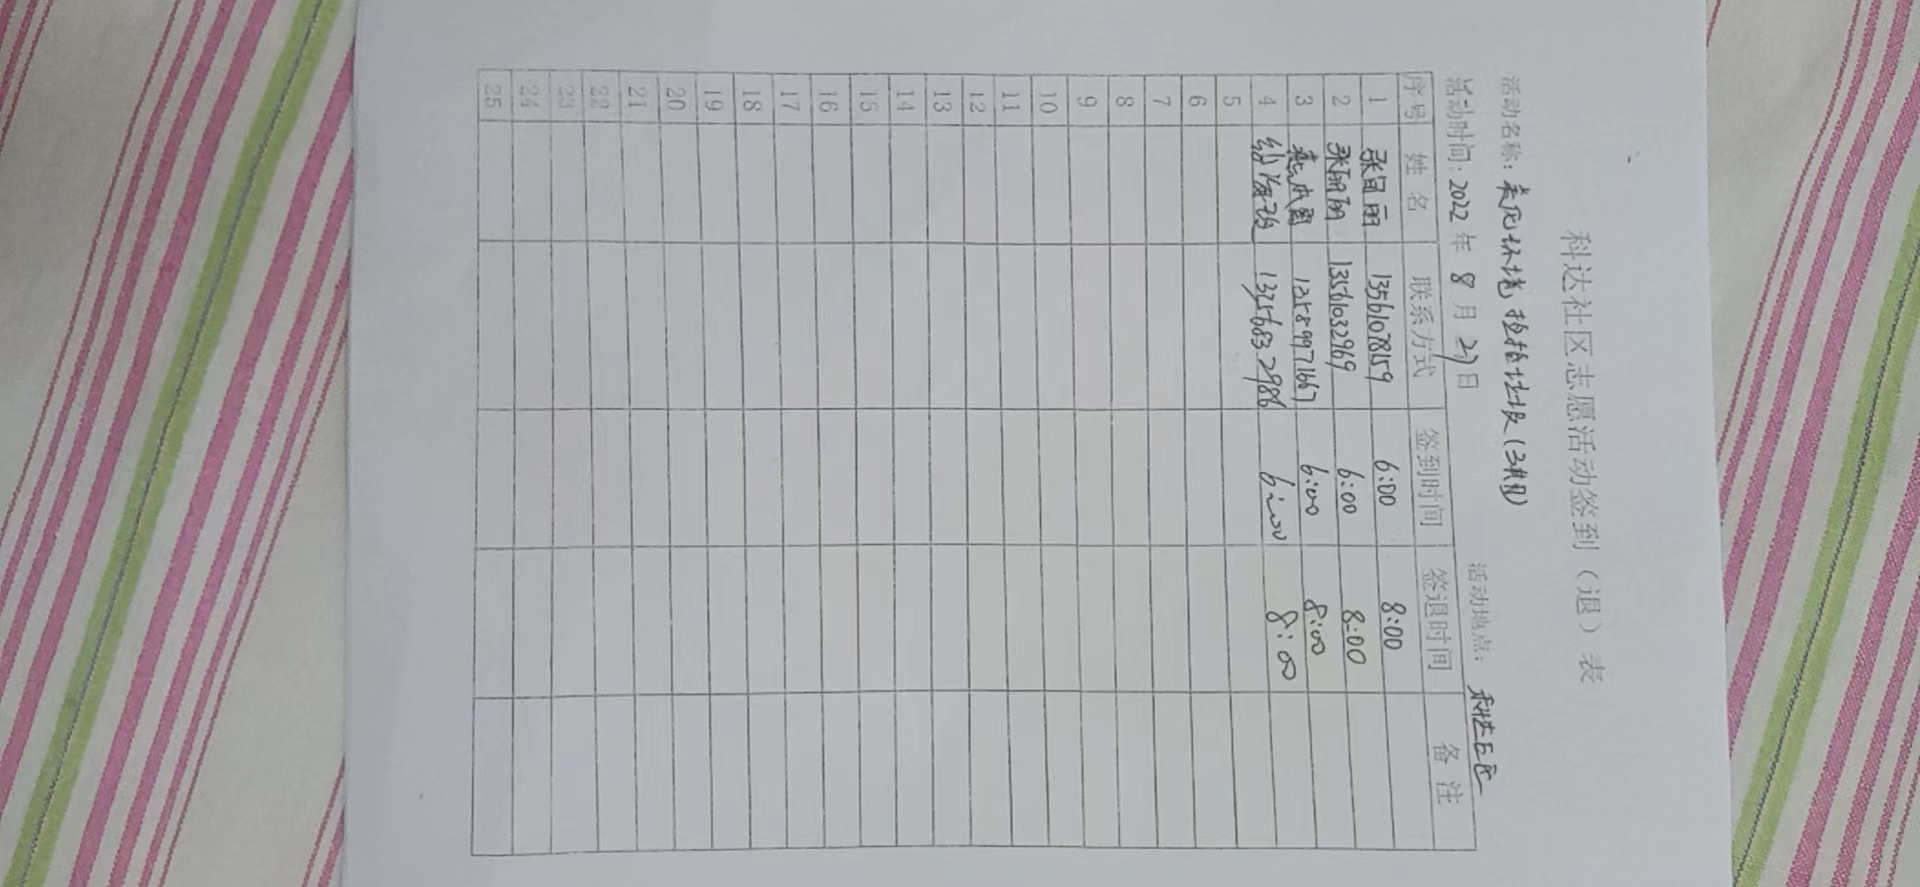 科达社区志愿活动签到（退）表
活动名称：美化环境 捡拾垃圾（3月）
活动时间：2022年 8月 27日 活动地点：科达E区
序号 姓名 联系方式 签到时间 签退时间 备注
1 13561078159 6:00 8:00
2 张丽丽 13561032969 6:00 8:00
3 6:00 8:00
4 13256832986 6:00 8:00
5
6
7
8
9
10
11
12
13
14
15
16
17
18
19
20
21
22
23
24
25